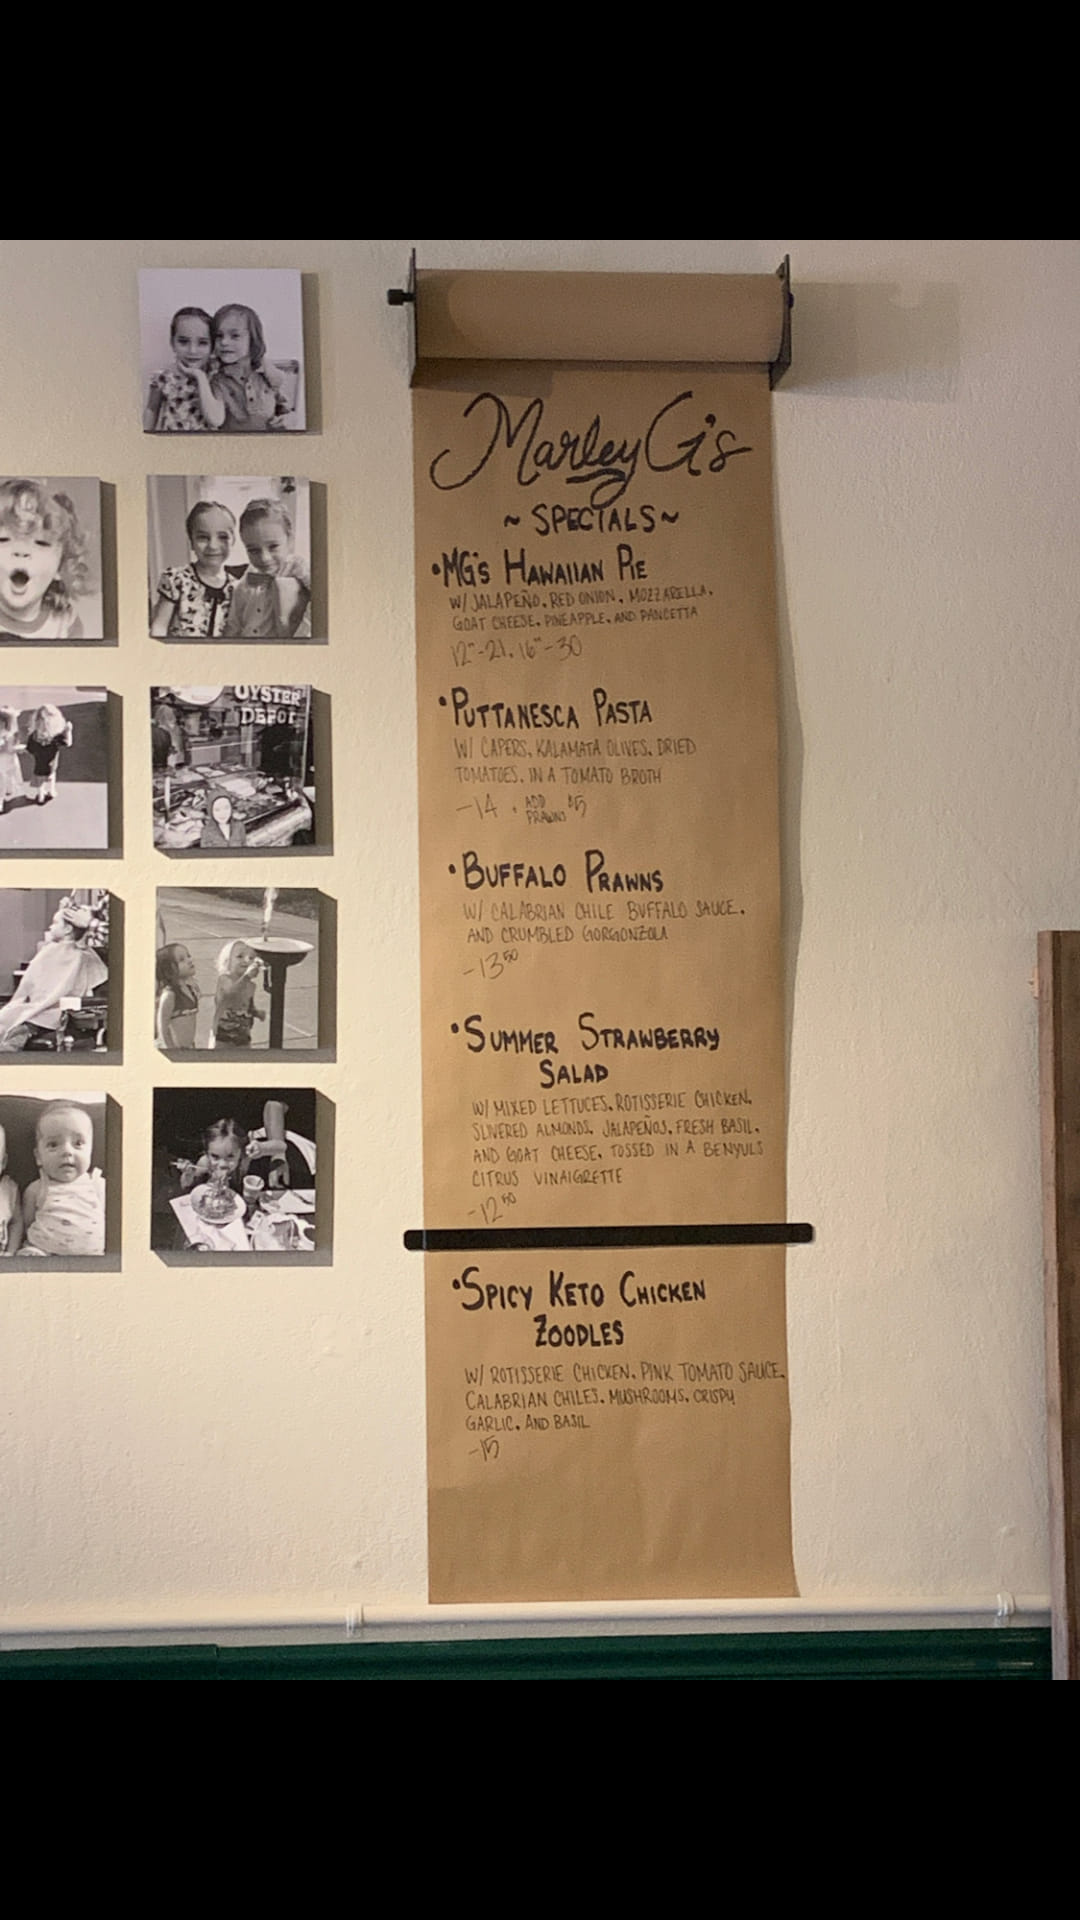 OYSTER
DEPOT
Marley G's
~ SPECIALS ~
• MG's HAWAIIAN PIE
W/ JALAPEÑO, RED ONION, MOZZARELLA,
GOAT CHEESE, PINEAPPLE, AND PANCETTA
12"-21, 16"-30
• PUTTANESCA PASTA
W/ CAPERS, KALAMATA OLIVES, DRIED
TOMATOES, IN A TOMATO BROTH
-14 • ADD PRAWNS $5
• BUFFALO PRAWNS
W/ CALABRIAN CHILE BUFFALO SAUCE,
AND CRUMBLED GORGONZOLA
-13⁵⁰
• SUMMER STRAWBERRY
SALAD
W/ MIXED LETTUCES, ROTISSERIE CHICKEN,
SLIVERED ALMONDS, JALAPEÑOS, FRESH BASIL,
AND GOAT CHEESE, TOSSED IN A BENYULS
CITRUS VINAIGRETTE
-12⁵⁰
• SPICY KETO CHICKEN
ZOODLES
W/ ROTISSERIE CHICKEN, PINK TOMATO SAUCE,
CALABRIAN CHILES, MUSHROOMS, CRISPY
GARLIC, AND BASIL
-15